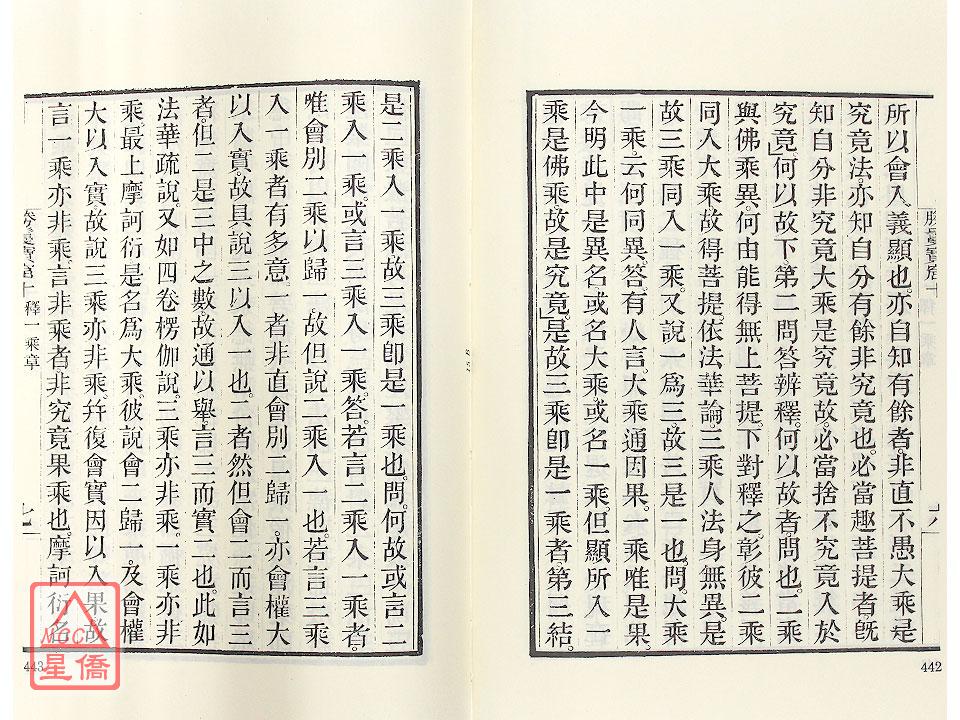 所以會入。義顯也。亦自知有餘者。非直不愚大乘。是
究竟法。亦知自分有餘非究竟也。必當趣菩提者。旣
知自分非究竟。大乘是究竟。故必當捨不究竟入於
究竟」何以故下。第二問答辨釋。何以故者。問也。二乘
與佛乘異。何由能得無上菩提。下對釋之。彰彼二乘
同入大乘。故得菩提。依法華論。三乘人法身無異。是
故三乘同入一乘。又說一爲三。故三是一也。問。大乘
一乘。云何同異。答。有人言。大乘通因果。一乘唯是果。
今明此中是異名。或名大乘。或名一乘。但顯所入一
乘是佛乘。故是究竟」是故三乘卽是一乘者。第三結。
442
是二乘入一乘。故三乘卽是一乘也。問。何故或言二
乘入一乘。或言三乘入一乘。答。若言二乘入一乘者。
唯會別二乘以歸一。故但說二乘入一也。若言三乘
入一乘者。有多意。一者非直會別二歸一。亦會權大
以入實。故具說三以入一也。二者然但會二而言三
者。但二是三中之數。故通以舉。言三而實二也。此如
法華疏說。又如四卷楞伽說。三乘亦非乘。一乘亦非
乘。最上摩訶衍是名爲大乘。彼說會二歸一。及會權
大以入實。故說三乘亦非乘。幷復會實因以入果。故
言一乘亦非乘。言非乘者。非究竟果乘也。摩訶衍名
釋一乘章
443
MCC
星僑